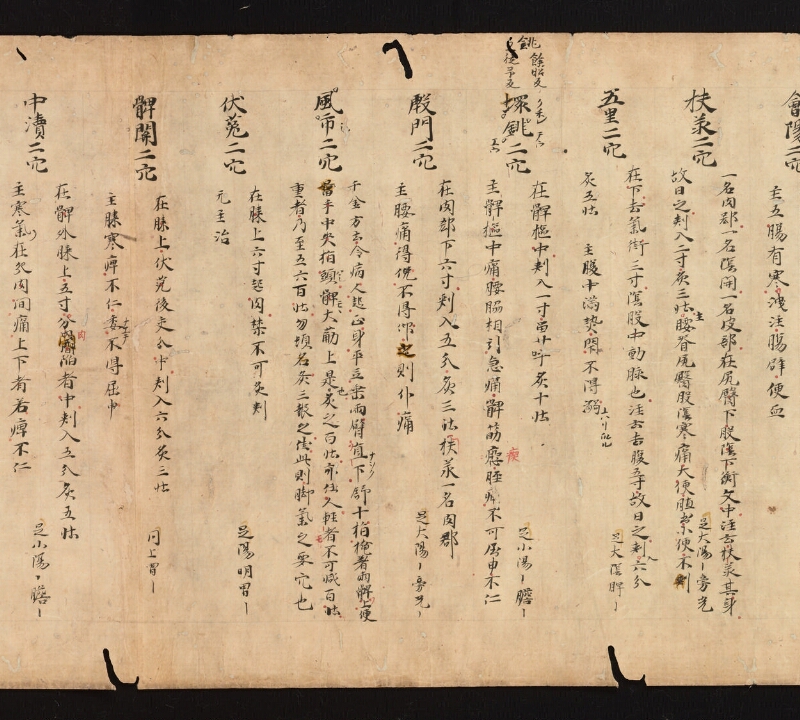 會陽二穴
主五腸有寒洩注腸癖便血
扶羕二穴
一名肉郄一名陰開一名皮部在尻臀下股陰下衝文中注云扶羕其身
故日之刾入二寸灸三壯主腰脊尻臀股陰寒痛大便直 便不
足大陽〻旁光
五里二穴
在下去氣街三寸陰股中動脉也注云去腹五寸故日之刾六分
灸五壯 主腹中滿熱閇不得溺
足大陰脾〻
環銚二穴
在髀樞中刾入一寸留廿呼灸十壯
主髀樞中痛腰脇相引急痛髀筋瘈脛痛不可屈申不仁
足小陽〻膽〻
殷門二穴
在肉郄下六寸刾入五分灸三壯扶羕一名肉郄
主腰痛得俛不得仰起則仆痛
足大陽〻旁光〻
風市二穴
千金方云令病人起正身平立垂兩臂直下舒十指掩著兩髀便
當手中央指頭髀大筋上是灸之百壯亦任人輕者不可減百壯
重者乃至五六百壯勿頓名灸三報之佳此則脚氣之要穴也
伏菟二穴
在膝上六寸起肉禁不可灸刾
元主治
足陽明胃〻
髀關二穴
在膝上伏菟後交分中刾入六分灸三壯
主膝寒痺不仁委不得屈申
同上胃〻
中瀆二穴
在髀外膝上五寸分肉陷者中刾入五分灸五壯
主寒氣在分肉间痛上下者若痺不仁
足小陽〻膽〻